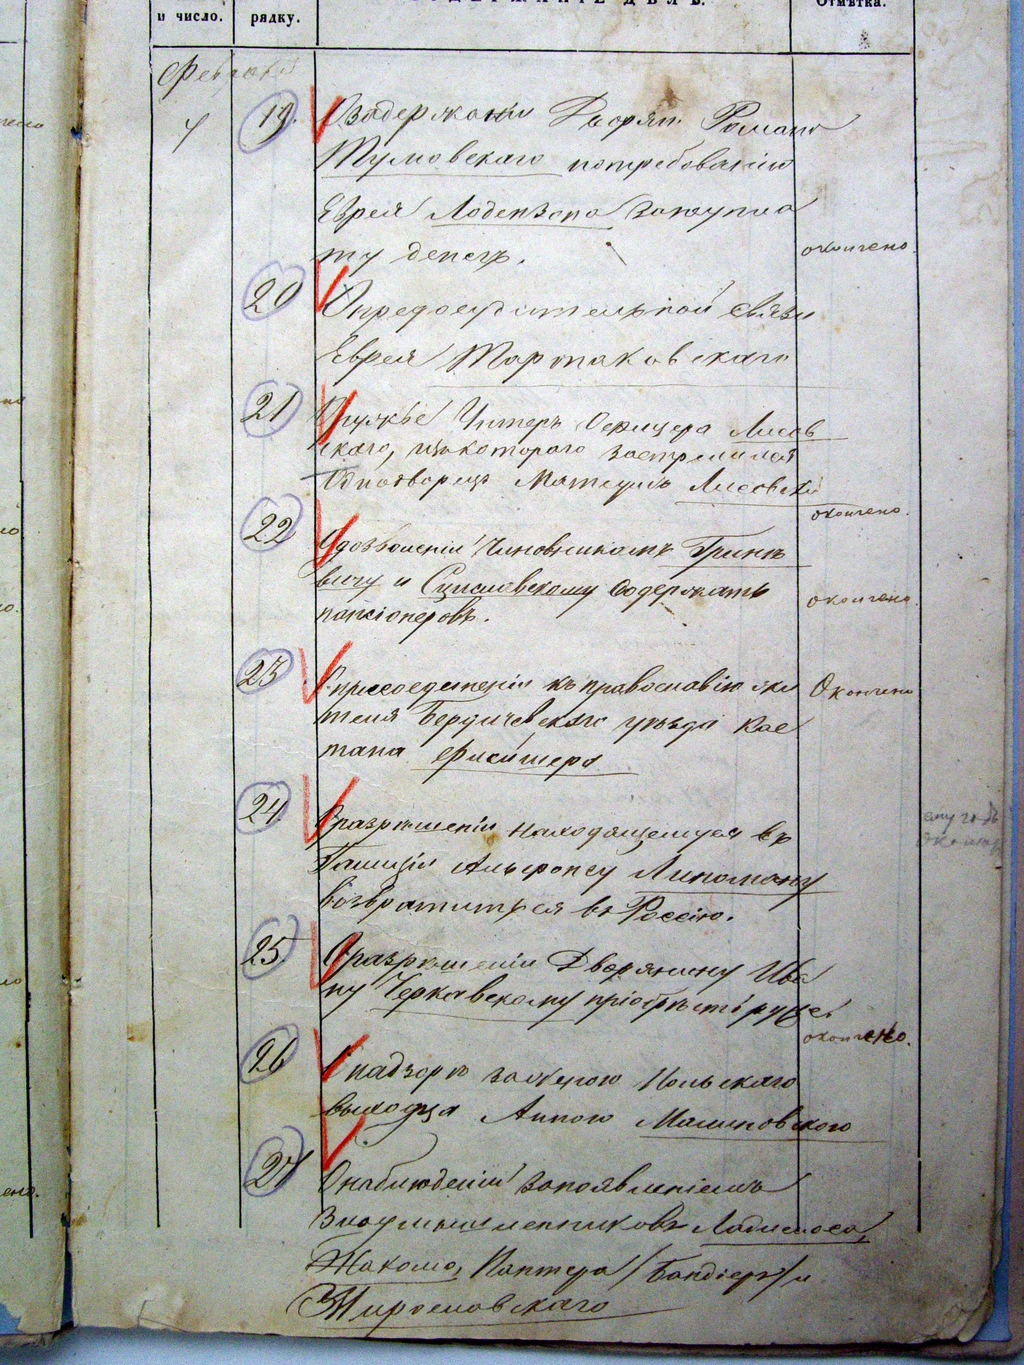 и число.
рядку.
СОДЕРЖАНІЕ ДѢЛЪ.
Отмѣтка.
Февраля
7
19.
О задержаніи Дворян. Романа
Тумовскаго по требованію
Еврея за неуплa
ту денегъ.
окончено.
20
О предосудительной связи
Еврея Тартаковскаго
21
О ружьѣ Унтеръ Офицера Лисов
скаго, изъ котораго застрелился
Однодворецъ Матеушъ Лисовскій
окончено.
22
О дозволеніи Чиновникамъ Гринк
вичу и Сцисловскому содержать
пансіонеровъ.
окончено.
23
О присоединеніи къ православію жи
теля Бердичевскаго уѣзда Кае
тана Флейшера
Окончено
24
О разрѣшеніи находящемуся въ
Галиціи Альфонсу Липоману
возвратиться въ Россію.
25
О разрѣшеніи Дворянину Ива
ну Черкавскому пріобрѣсть ружье
окончено.
26
О надзорѣ за женою Польскаго
выходца Анною Малиновскаго
27
О наблюденіи за появленіемъ
злоумышленниковъ Ладислоса,
Жакомо, Пантера /Бандіера/ и
Мирославскаго